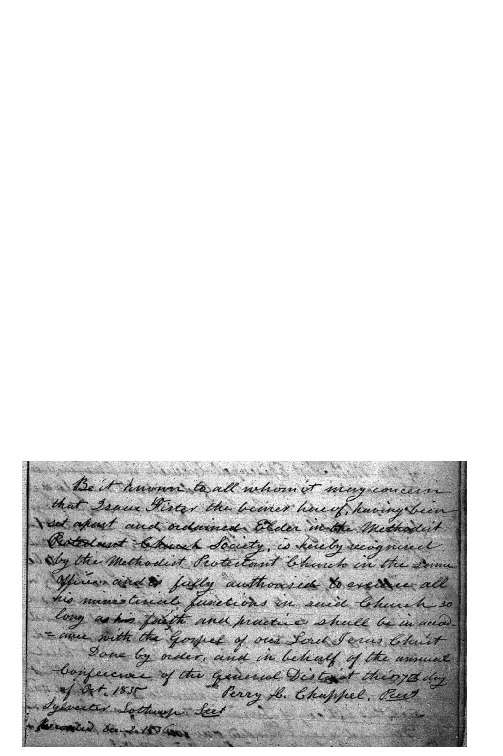 Be it known to all whom it may concern
that Isaac Fister the bearer hereof, having been
set apart and ordained Elder in the Methodist
Protestant Church Society, is hereby recognised
by the Methodist Protestant Church in the same
office and is fully authorised to exercise all
his ministerial functions in said Church so
long as his faith and practice shall be in accord
=ance with the Gospel of our Lord Jesus Christ
Done by order, and in behalf of the annual
Conference of the General District this day
of Oct. 1835 Perry L. Chappel, Pres
Sylvester Secy
Recorded